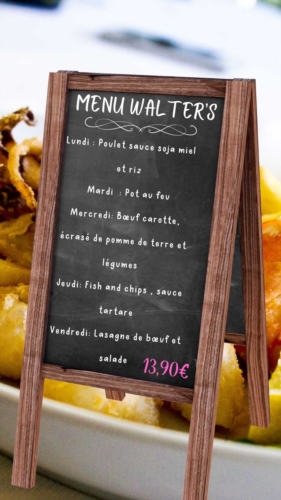 MENU WALTER'S
Lundi : Poulet sauce soja miel
et riz
Mardi : Pot au feu
Mercredi: Bœuf carotte,
écrasé de pomme de terre et
légumes
Jeudi: Fish and chips , sauce
tartare
Vendredi: Lasagne de bœuf et
salade
13,90€